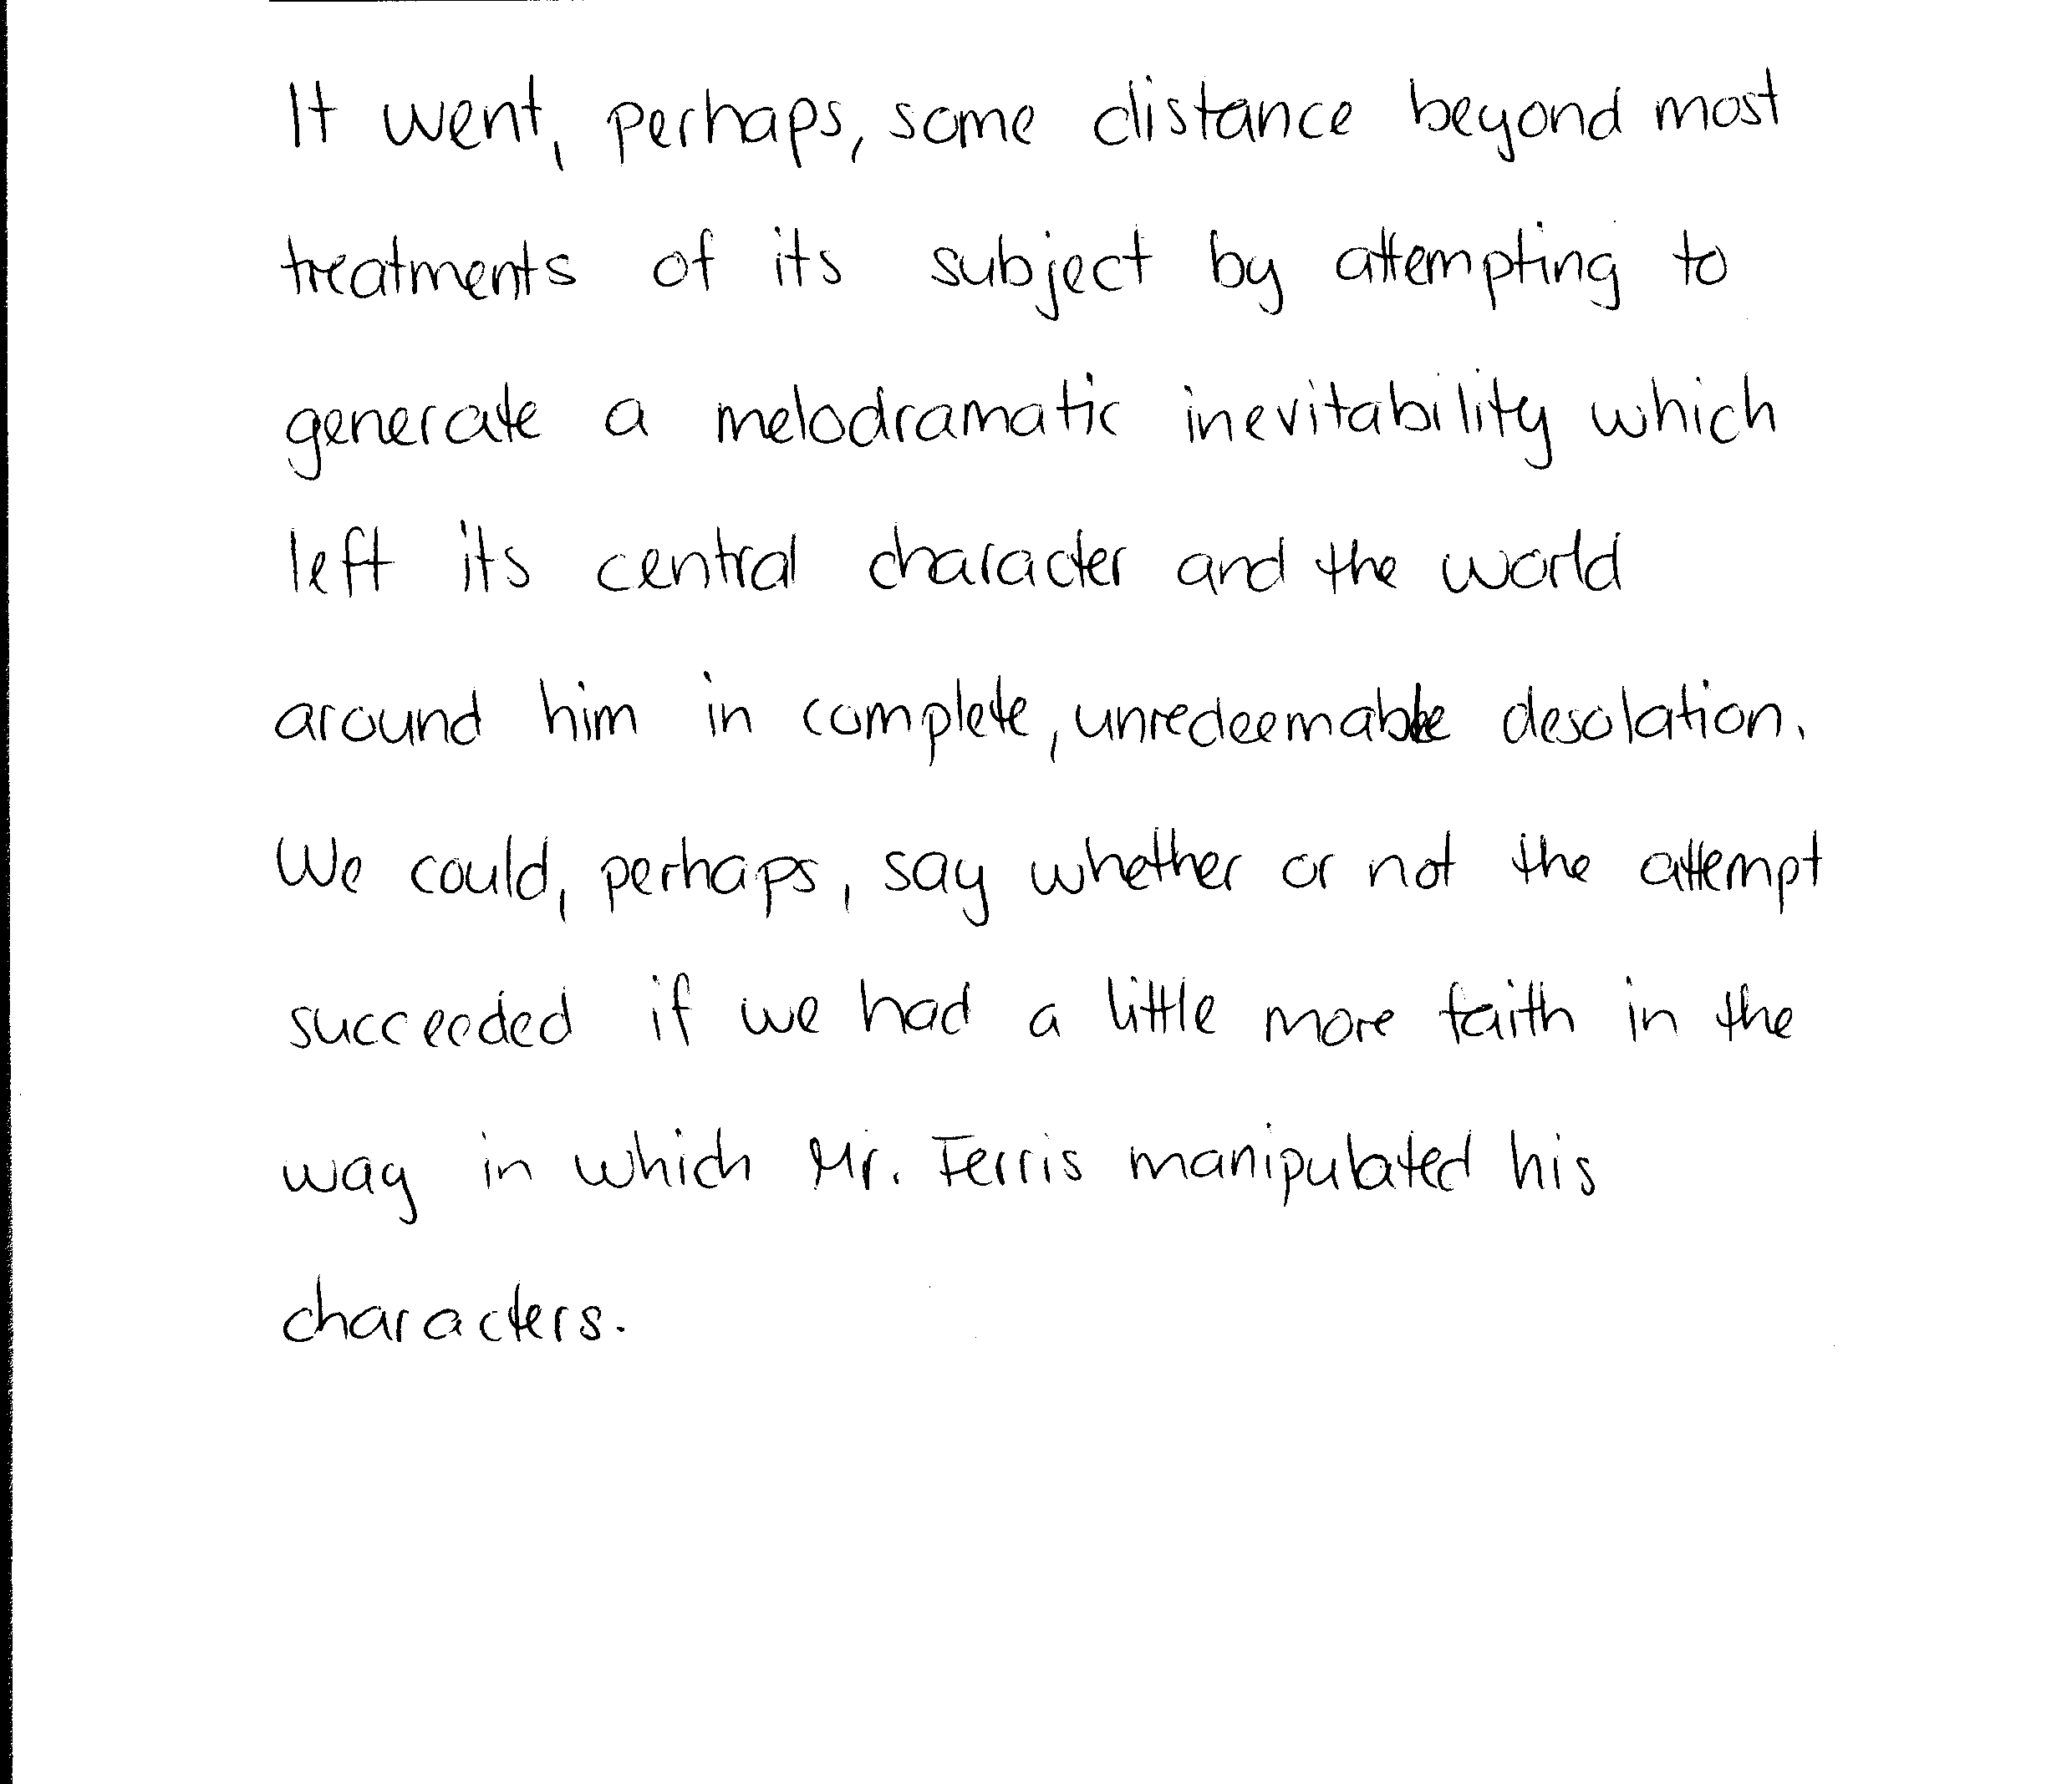 It went, perhaps, some distance beyond most
treatments of its subject by attempting to
generate a melodramatic inevitability which
left its central character and the world
around him in complete, unredeemable desolation.
We could, perhaps, say whether or not the attempt
succeeded if we had a little more faith in the
way in which Mr. Ferris manipulated his
characters.